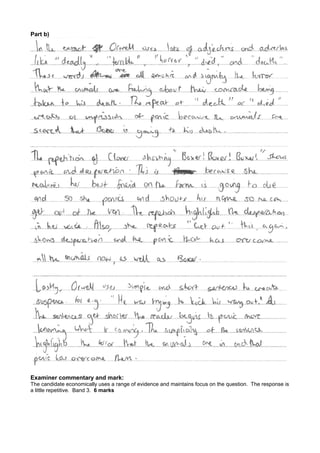 Part b)
In the extract Orwell uses lots of adjectives and adverbs
like "deadly", "terrible", "horror", "died", and "death".
These words are all emotive and signify the horror
that the animals are feeling about their comrade being
taken to his death. The repeat of "death" or "died"
creates an impression of panic because the animals are
scared that Boxer is going to his death.
The repetition of Clover shouting "Boxer! Boxer! Boxer!" shows
panic and desperation. This is because she
realises her best friend on the farm is going to die
and so she panics and shouts his name so he can
get out of the van. The repetition highlights the desperation
in her voice. Also, she repeats "Get out" this again,
shows desperation and the panic that has overcome
all the animals now, as well as Boxer.
Lastly, Orwell uses simple and short sentences to create
suspense for e.g. "He was trying to kick his way out." As
the sentences get shorter the reader begins to panic more
knowing what is coming. The simplicity of the sentences
highlights the terror that the animals are in and that
panic has overcome them.
Examiner commentary and mark:
The candidate economically uses a range of evidence and maintains focus on the question. The response is
a little repetitive. Band 3. 6 marks